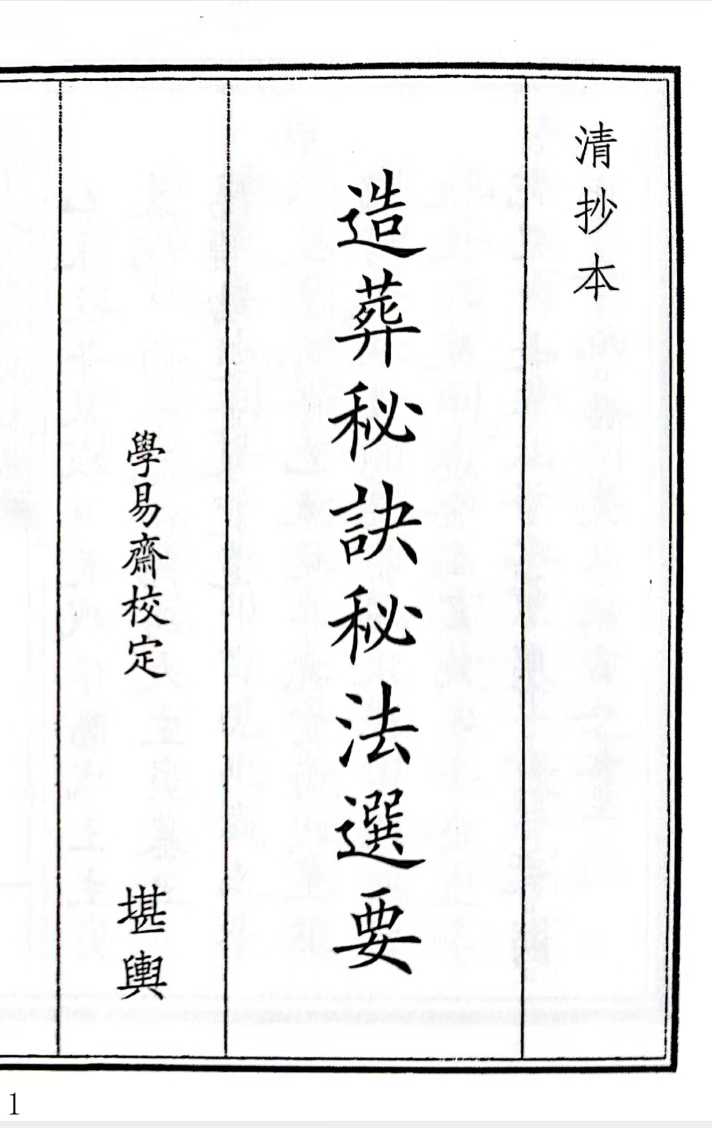 清抄本
造葬秘訣秘法選要
學易齋校定 堪輿
1